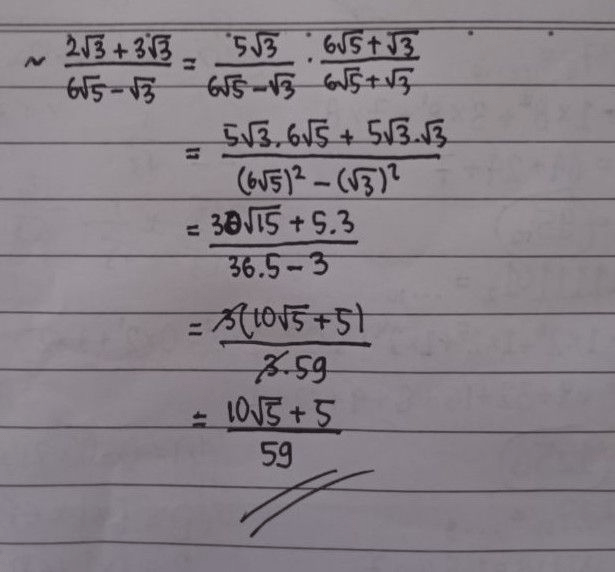 ~ (2√3 + 3√3)/(6√5 − √3) = 5√3/(6√5 − √3) · (6√5 + √3)/(6√5 + √3)
= (5√3 . 6√5 + 5√3 . √3)/((6√5)² − (√3)²)
= (30√15 + 5.3)/(36.5 − 3)
= 3(10√5 + 5)/(3.59)
= (10√5 + 5)/59